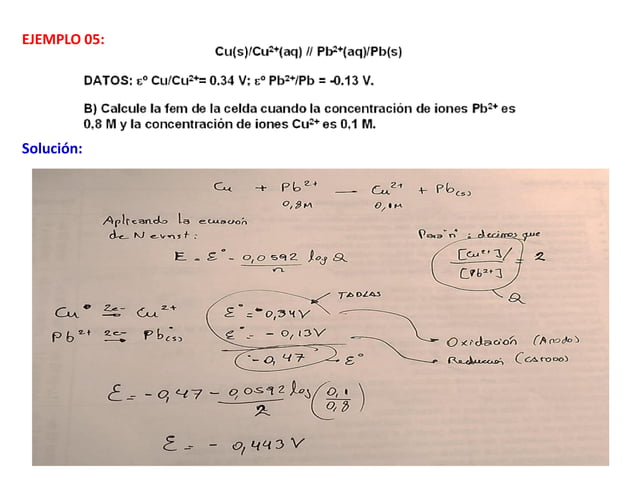 EJEMPLO 05:
Cu(s)/Cu²⁺(aq) // Pb²⁺(aq)/Pb(s)
DATOS: εº Cu/Cu²⁺= 0.34 V; εº Pb²⁺/Pb = -0.13 V.
B) Calcule la fem de la celda cuando la concentración de iones Pb²⁺ es
0,8 M y la concentración de iones Cu²⁺ es 0,1 M.
Solución:
Cu + Pb²⁺ — Cu²⁺ + Pb(s)
0,8M 0,1M
Aplicando la ecuación
de Nernst:
Para "n": decimos que
E = E° - 0,0592/n log Q
[Cu²⁺]/[Pb²⁺] = 2
Q
TABLAS
Cu° 2e-→ Cu²⁺ E° = -0,34V
Pb²⁺ 2e-→ Pb°(s) E° = -0,13V
Oxidación (Anodo)
Reducción (Catodo)
-0,47 E°
E = -0,47 - 0,0592/2 log (0,1/0,8)
E = - 0,443 V